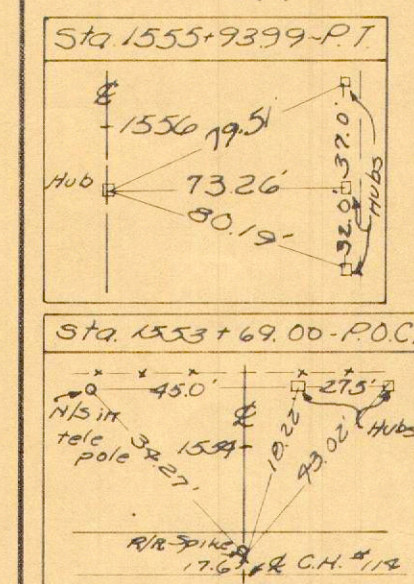 Sta. 1555+93.99-P.T.
℄
1556
79.51'
Hub
73.26'
80.19'
37.0'
32.0'
Hubs
Sta. 1553+69.00-P.O.C.
45.0'
27.5'
N/S in
tele
pole
34.27'
℄
1554
18.22'
43.02'
Hubs
R/R-Spike
17.6'
℄ C.H. #114